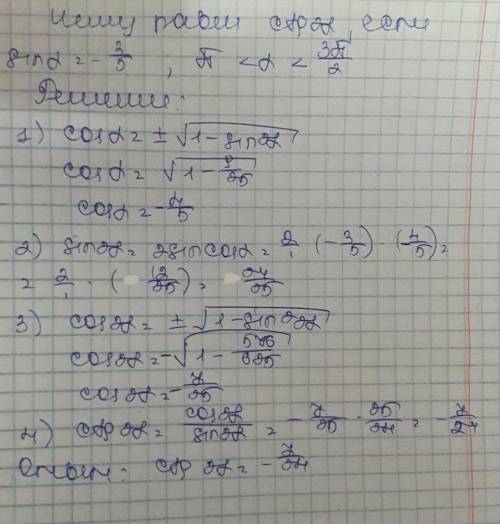 Чему равен ctg2α, если
sinα = -3/5, π < α < 3π/2
Решение:
1) cosα = ± √(1 - sin²α)
cosα = √(1 - 9/25)
cosα = -4/5
2) sin2α = 2sin cosα = 2/1 · (-3/5) · (-4/5) =
= 2/1 · (12/25) = 24/25
3) cos2α = ± √(1 - sin²2α)
cos2α = -√(1 - 576/625)
cos2α = -7/25
4) ctg2α = cos2α/sin2α = -7/25 · 25/24 = -7/24
Ответ: ctg 2α = -7/24